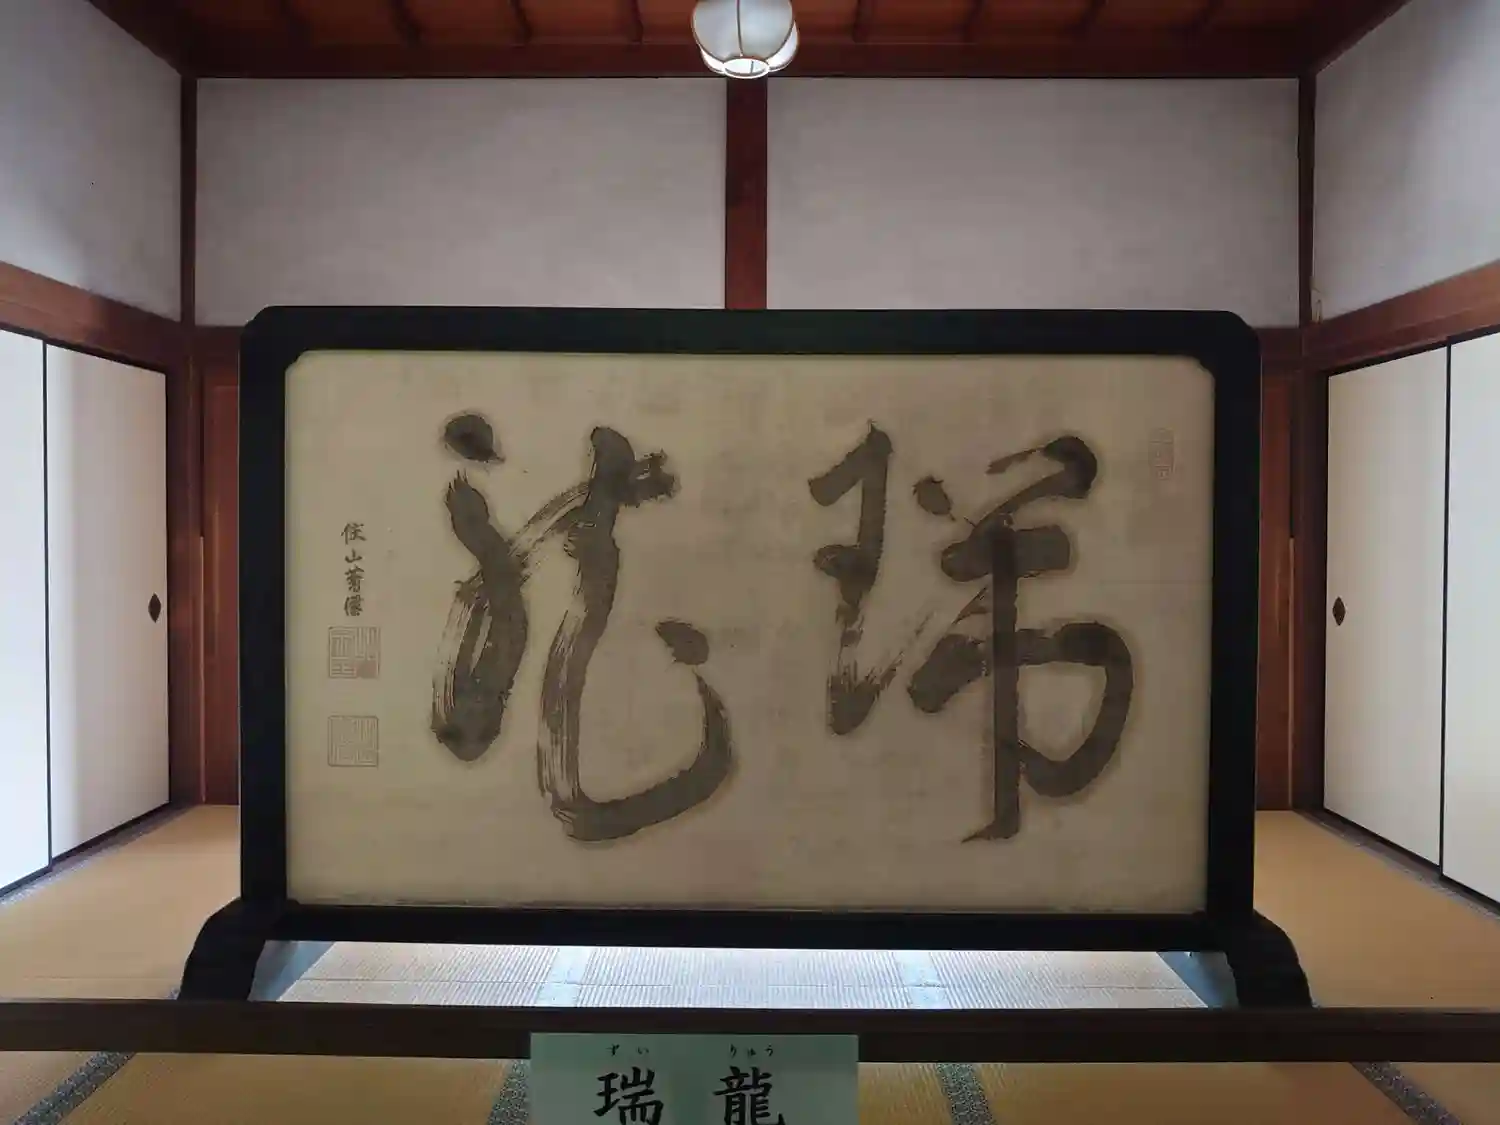 瑞龍
住山
ずい りゅう
瑞 龍